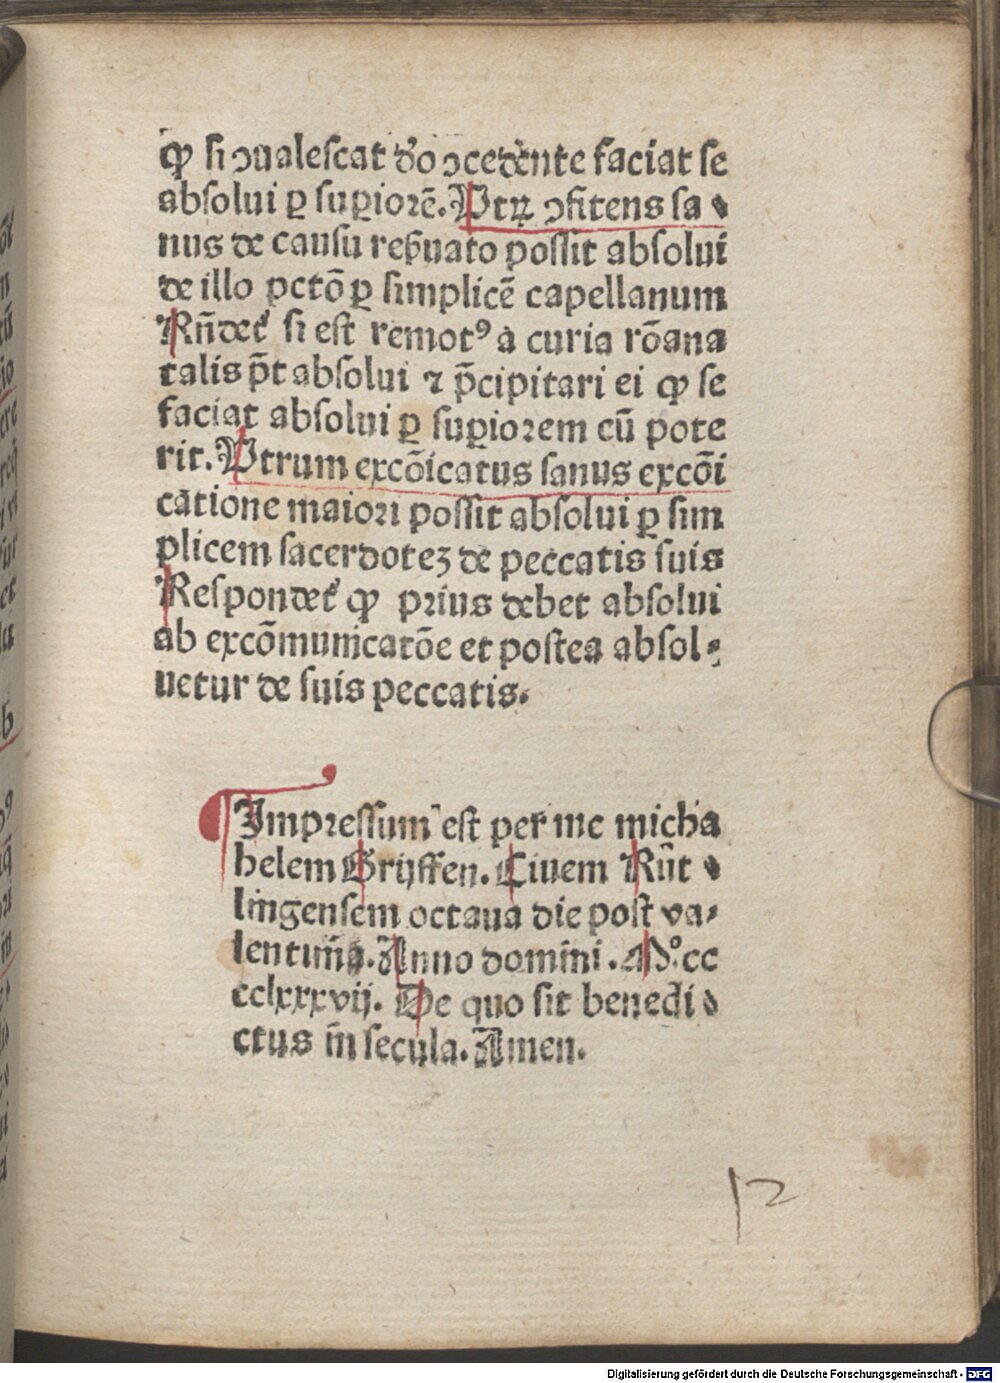 ꝙ si ↄualescat d̓o ↄcedēnte faciat se
absolui ꝑ suꝑiorē. Vtꝝ ↄfitens sa⸗
nus de causu reẜuato possit absolui
de illo pctō ꝑ simplicē capellanum
Rn̄det᷑ si est remotꝰ a curia rōana
talis p̄t absolui ⁊ p̄cipitari ei ꝙ se
faciat absolui ꝑ suꝑiorem cū pote
rit. Vtrum excōicatus sanus excōi
catione maiori possit absolui ꝑ sim
plicem sacerdoteꝫ de peccatis suis
Respondet᷑ ꝙ prius debet absolui
ab excōmunicatōe et postea absol⸗
uetur de suis peccatis.
Impressum est per me micha
helem Grijffen. Ciuem Rūt⸗
lingensem octaua die post va⸗
lentini. Anno domini. Mº.cc
cclxxxvij. De quo sit benedi⸗
ctus in secula. Amen.
12
Digitalisierung gefördert durch die Deutsche Forschungsgemeinschaft - DFG